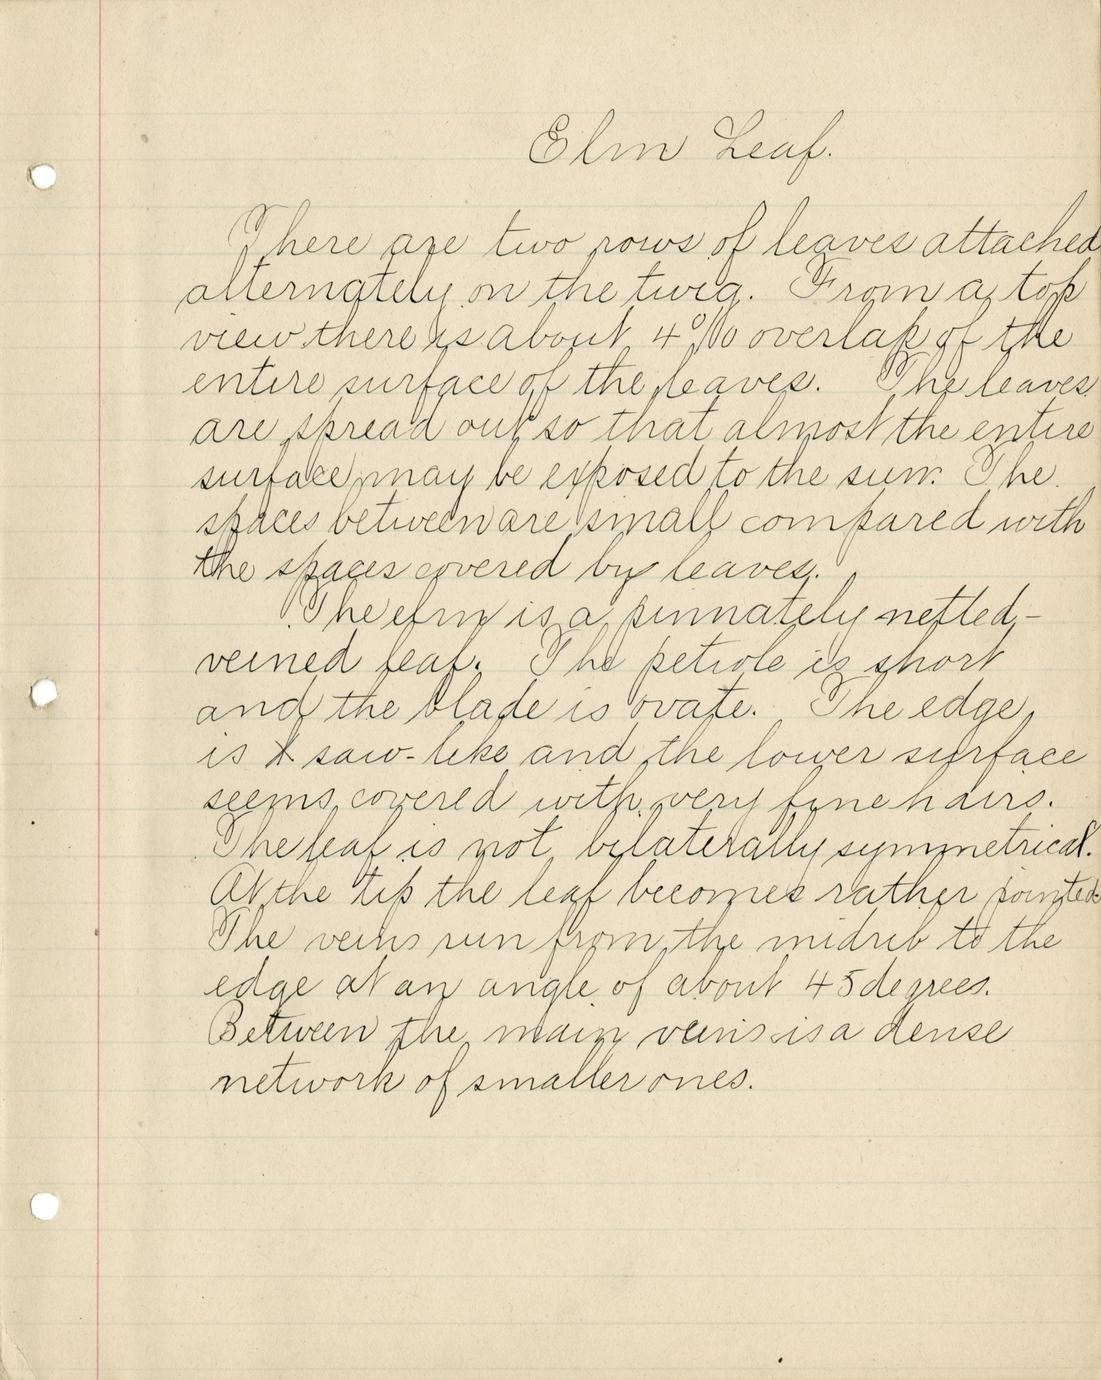 Elm Leaf.
There are two rows of leaves attached
alternately on the twig. From a top
view there is about 4% overlap of the
entire surface of the leaves. The leaves
are spread out so that almost the entire
surface may be exposed to the sun. The
spaces between are small compared with
the spaces covered by leaves.
The elm is a pinnately netted-
veined leaf. The petiole is short
and the blade is ovate. The edge
is saw-like and the lower surface
seems covered with very fine hairs.
The leaf is not bilaterally symmetrical.
At the tip the leaf becomes rather pointed
The veins run from the midrib to the
edge at an angle of about 45 degrees.
Between the main veins is a dense
network of smaller ones.